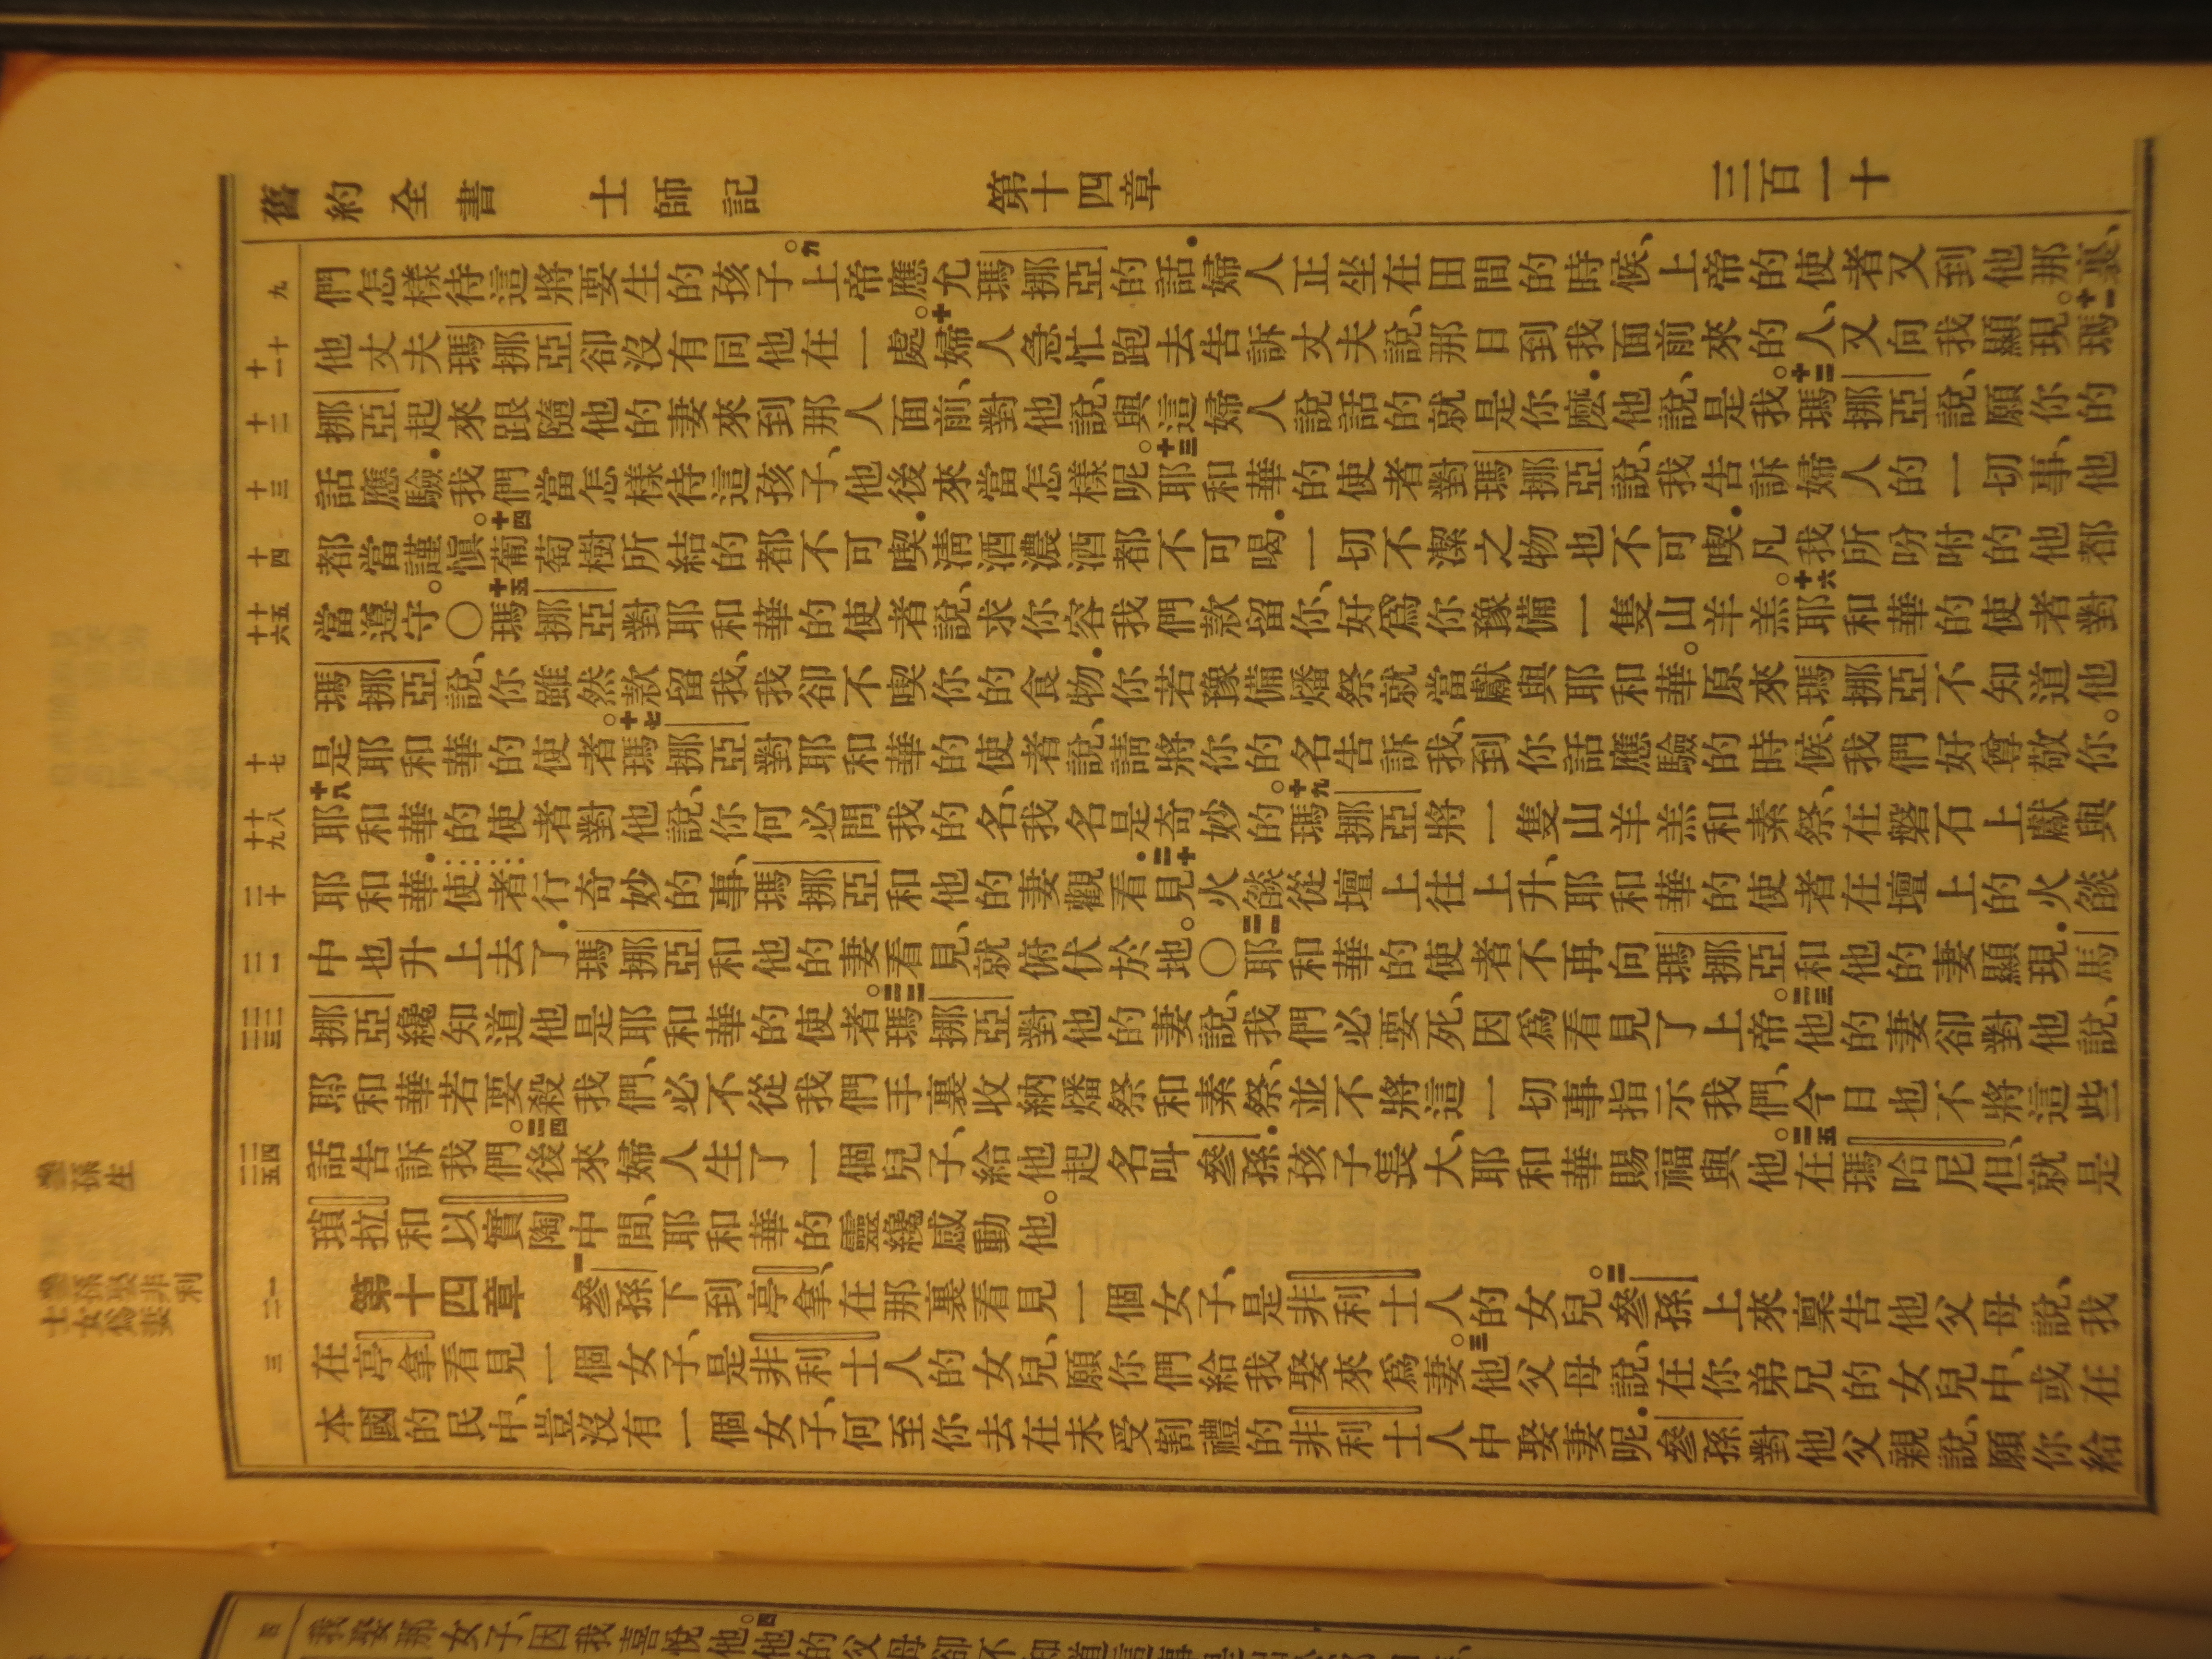 舊約全書 士師記 第十四章 三百一十
九
們怎樣待這將要生的孩子。九上帝應允瑪挪亞的話．婦人正坐在田間的時候、上帝的使者又到他那裏、
十 十一
他丈夫瑪挪亞卻沒有同他在一處。十婦人急忙跑去告訴丈夫說、那日到我面前來的人、又向我顯現。十一瑪
十二
挪亞起來跟隨他的妻來到那人面前、對他說、與這婦人說話的就是你麽．他說、是我。十二瑪挪亞說、願你的
十三
話應驗．我們當怎樣待這孩子、他後來當怎樣呢。十三耶和華的使者對瑪挪亞說、我告訴婦人的一切事、他
十四
都當謹愼。十四葡萄樹所結的都不可喫．淸酒濃酒都不可喝．一切不潔之物也不可喫．凡我所吩咐的他都
十五 十六
當遵守。〇十五瑪挪亞對耶和華的使者說、求你容我們款留你、好爲你豫備一隻山羊羔。十六耶和華的使者對
瑪挪亞說、你雖然款留我、我卻不喫你的食物．你若豫備燔祭就當獻與耶和華。原來瑪挪亞不知道他
十七
是耶和華的使者。十七瑪挪亞對耶和華的使者說、請將你的名告訴我、到你話應驗的時候、我們好尊敬你。
十八 十九
十八耶和華的使者對他說、你何必問我的名、我名是奇妙的。十九瑪挪亞將一隻山羊羔和素祭、在磐石上獻與
二十
耶和華．使者行奇妙的事、瑪挪亞和他的妻觀看．二十見火燄從壇上往上升、耶和華的使者在壇上的火燄
二一
中也升上去了．瑪挪亞和他的妻看見、就俯伏於地。〇二一耶和華的使者不再向瑪挪亞和他的妻顯現．馬
二二 二三
挪亞纔知道他是耶和華的使者。二二瑪挪亞對他的妻說、我們必要死、因爲看見了上帝。二三他的妻卻對他說、
耶和華若要殺我們、必不從我們手裏收納燔祭和素祭、並不將這一切事指示我們、今日也不將這些
二四 二五
話告訴我們。二四後來婦人生了一個兒子、給他起名叫參孫．孩子長大、耶和華賜福與他。二五在瑪哈尼但、就是
瑣拉和以實陶中間、耶和華的靈纔感動他。
參孫生
一 二
第十四章 一參孫下到亭拿、在那裏看見一個女子、是非利士人的女兒。二參孫上來稟告他父母說、我
參孫娶非利士女爲妻
三
在亭拿看見一個女子、是非利士人的女兒、願你們給我娶來爲妻。三他父母說、在你弟兄的女兒中、或在
本國的民中、豈沒有一個女子、何至你去在未受割禮的非利士人中娶妻呢．參孫對他父親說、願你給
四
我娶那女子、因我喜悅他。四他的父母卻不知道這事